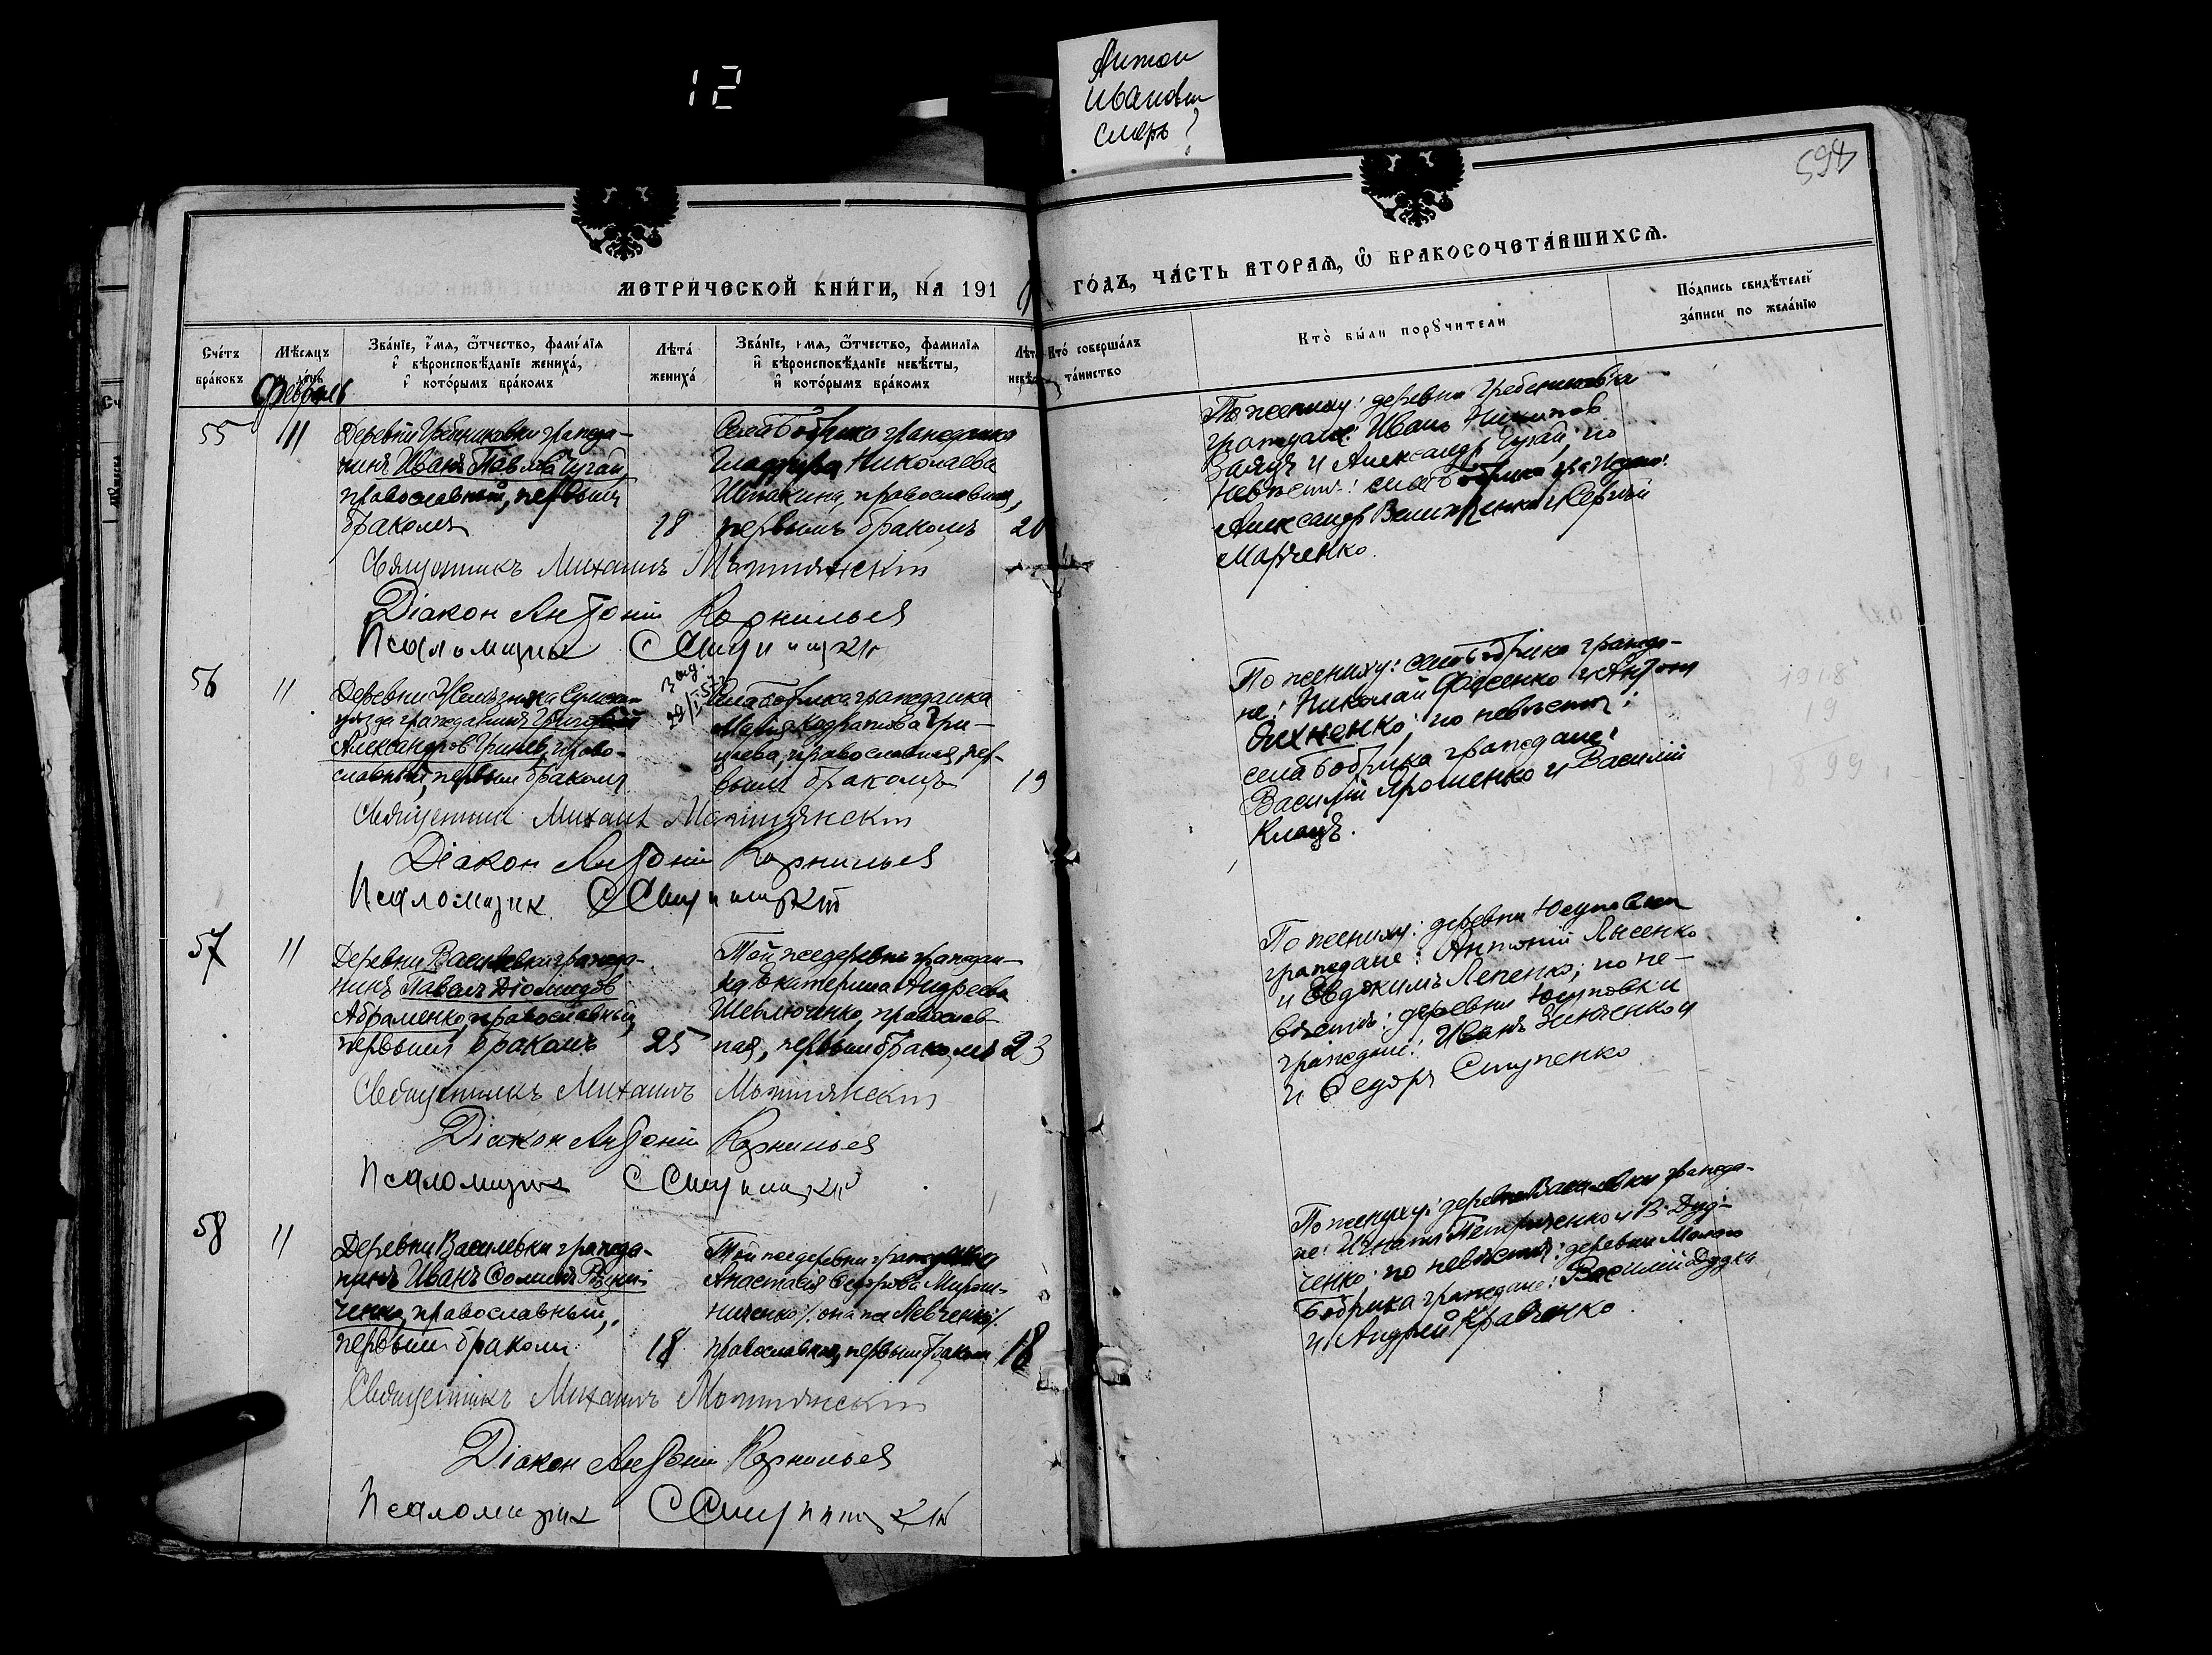 12
Антон
Иванович
смерь ?
594
465
МЕТРИЧЕСКОЙ КНИГИ, НА 191
ГОДЪ, ЧАСТЬ ВТОРАЯ, Ѿ БРАКОСОЧЕТАВШИХСЯ.
Счетъ браковъ
Мѣсяцъ и день
Званіе, имя, ѿтчество, фамилія и вѣроисповѣданіе жениха, и которымъ бракомъ
Лѣта жениха
Званіе, имя, ѿтчество, фамилія и вѣроисповѣданіе невѣсты, и которымъ бракомъ
Лѣта невѣсты
Кто совершалъ таинство
Кто были порꙋчители
Подпись свидѣтелей записи по желанію
Февраль
55
11
Деревни Гребениковки гражда-
нинъ Иванъ Павловъ Чугай,
православный, первымъ
бракомъ
18
Села Бобрика гражданка
Николаева
православная,
первымъ бракомъ
20
Священникъ Михаилъ
Діакон Антоній Корнильев
Псаломщик С
По жениху: деревни Гребениковки
граждане: Иванъ
Заяцъ и Александр Чугай; по
невѣстѣ: села Бобрика граждане:
Александр Величенко и Сергѣй
Марченко.
56
11
Деревни Сумскаго
уѣзда гражданинъ Григорій
Александров Гринев, право-
славный, первымъ бракомъ
Села Бобрика гражданка
Марія Кодратова Гри-
нева, православная, пер-
вымъ бракомъ
19
Священникъ Михаилъ
Діакон Антоній Корнильев
Псаломщик С
По жениху: села Бобрика гражда-
не: Николай Фесенко и Антон
Онхненко; по невѣстѣ:
села Бобрика граждане:
Василій Ярошенко и Василій
Клоцъ.
1918
19
899
57
11
Деревни Василевки гражда-
нинъ Павелъ Діомидов
Абраменко, православный,
первымъ бракомъ
25
Той же деревни граждан-
ка Екатерина Андреева
Шевлюченко, православ-
ная, первымъ бракомъ
23
Священникъ Михаилъ
Діакон Антоній Корнильев
Псаломщик С
По жениху: деревни Юсуповки
граждане: Антоній Лысенко
и Евдокимъ Лепенко; по не-
вѣстѣ: деревни Юсуповки
граждане: Иванъ Зинченко и
и Ѳедоръ Ступенко
58
11
Деревни Василевки гражда-
нинъ Иванъ Ѳоминъ
ченко, православный,
первымъ бракомъ
18
Той же деревни гражданка
Анастасія Ѳедорова Мирош-
ниченко /она же Левченко/.
православная, первымъ бракомъ
18
Священникъ Михаилъ
Діакон Антоній Корнильев
Псаломщик С
По жениху: деревни Василевки гражда-
не: Игнатій Петриченко и В. Дуд-
ченко; по невѣстѣ: деревни Малаго
Бобрика граждане: Василій Дудка
и Андрей Кравченко.